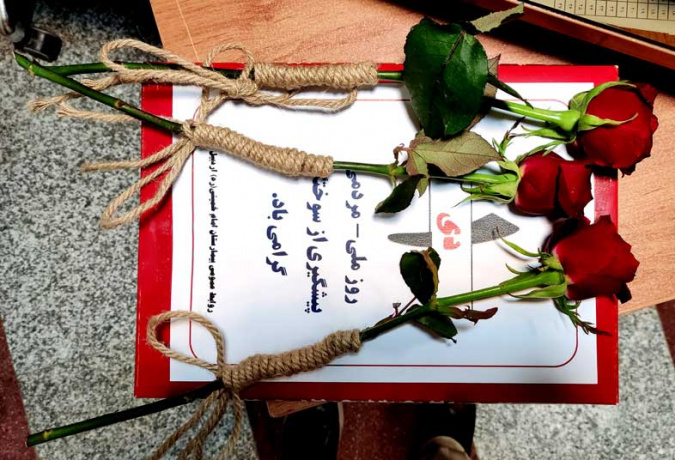 دی
روز ملی - مردمی
پیشگیری از سوخت
گرامی باد.
روابط عمومی بیمارستان امام خمینی(ره) اردبیل